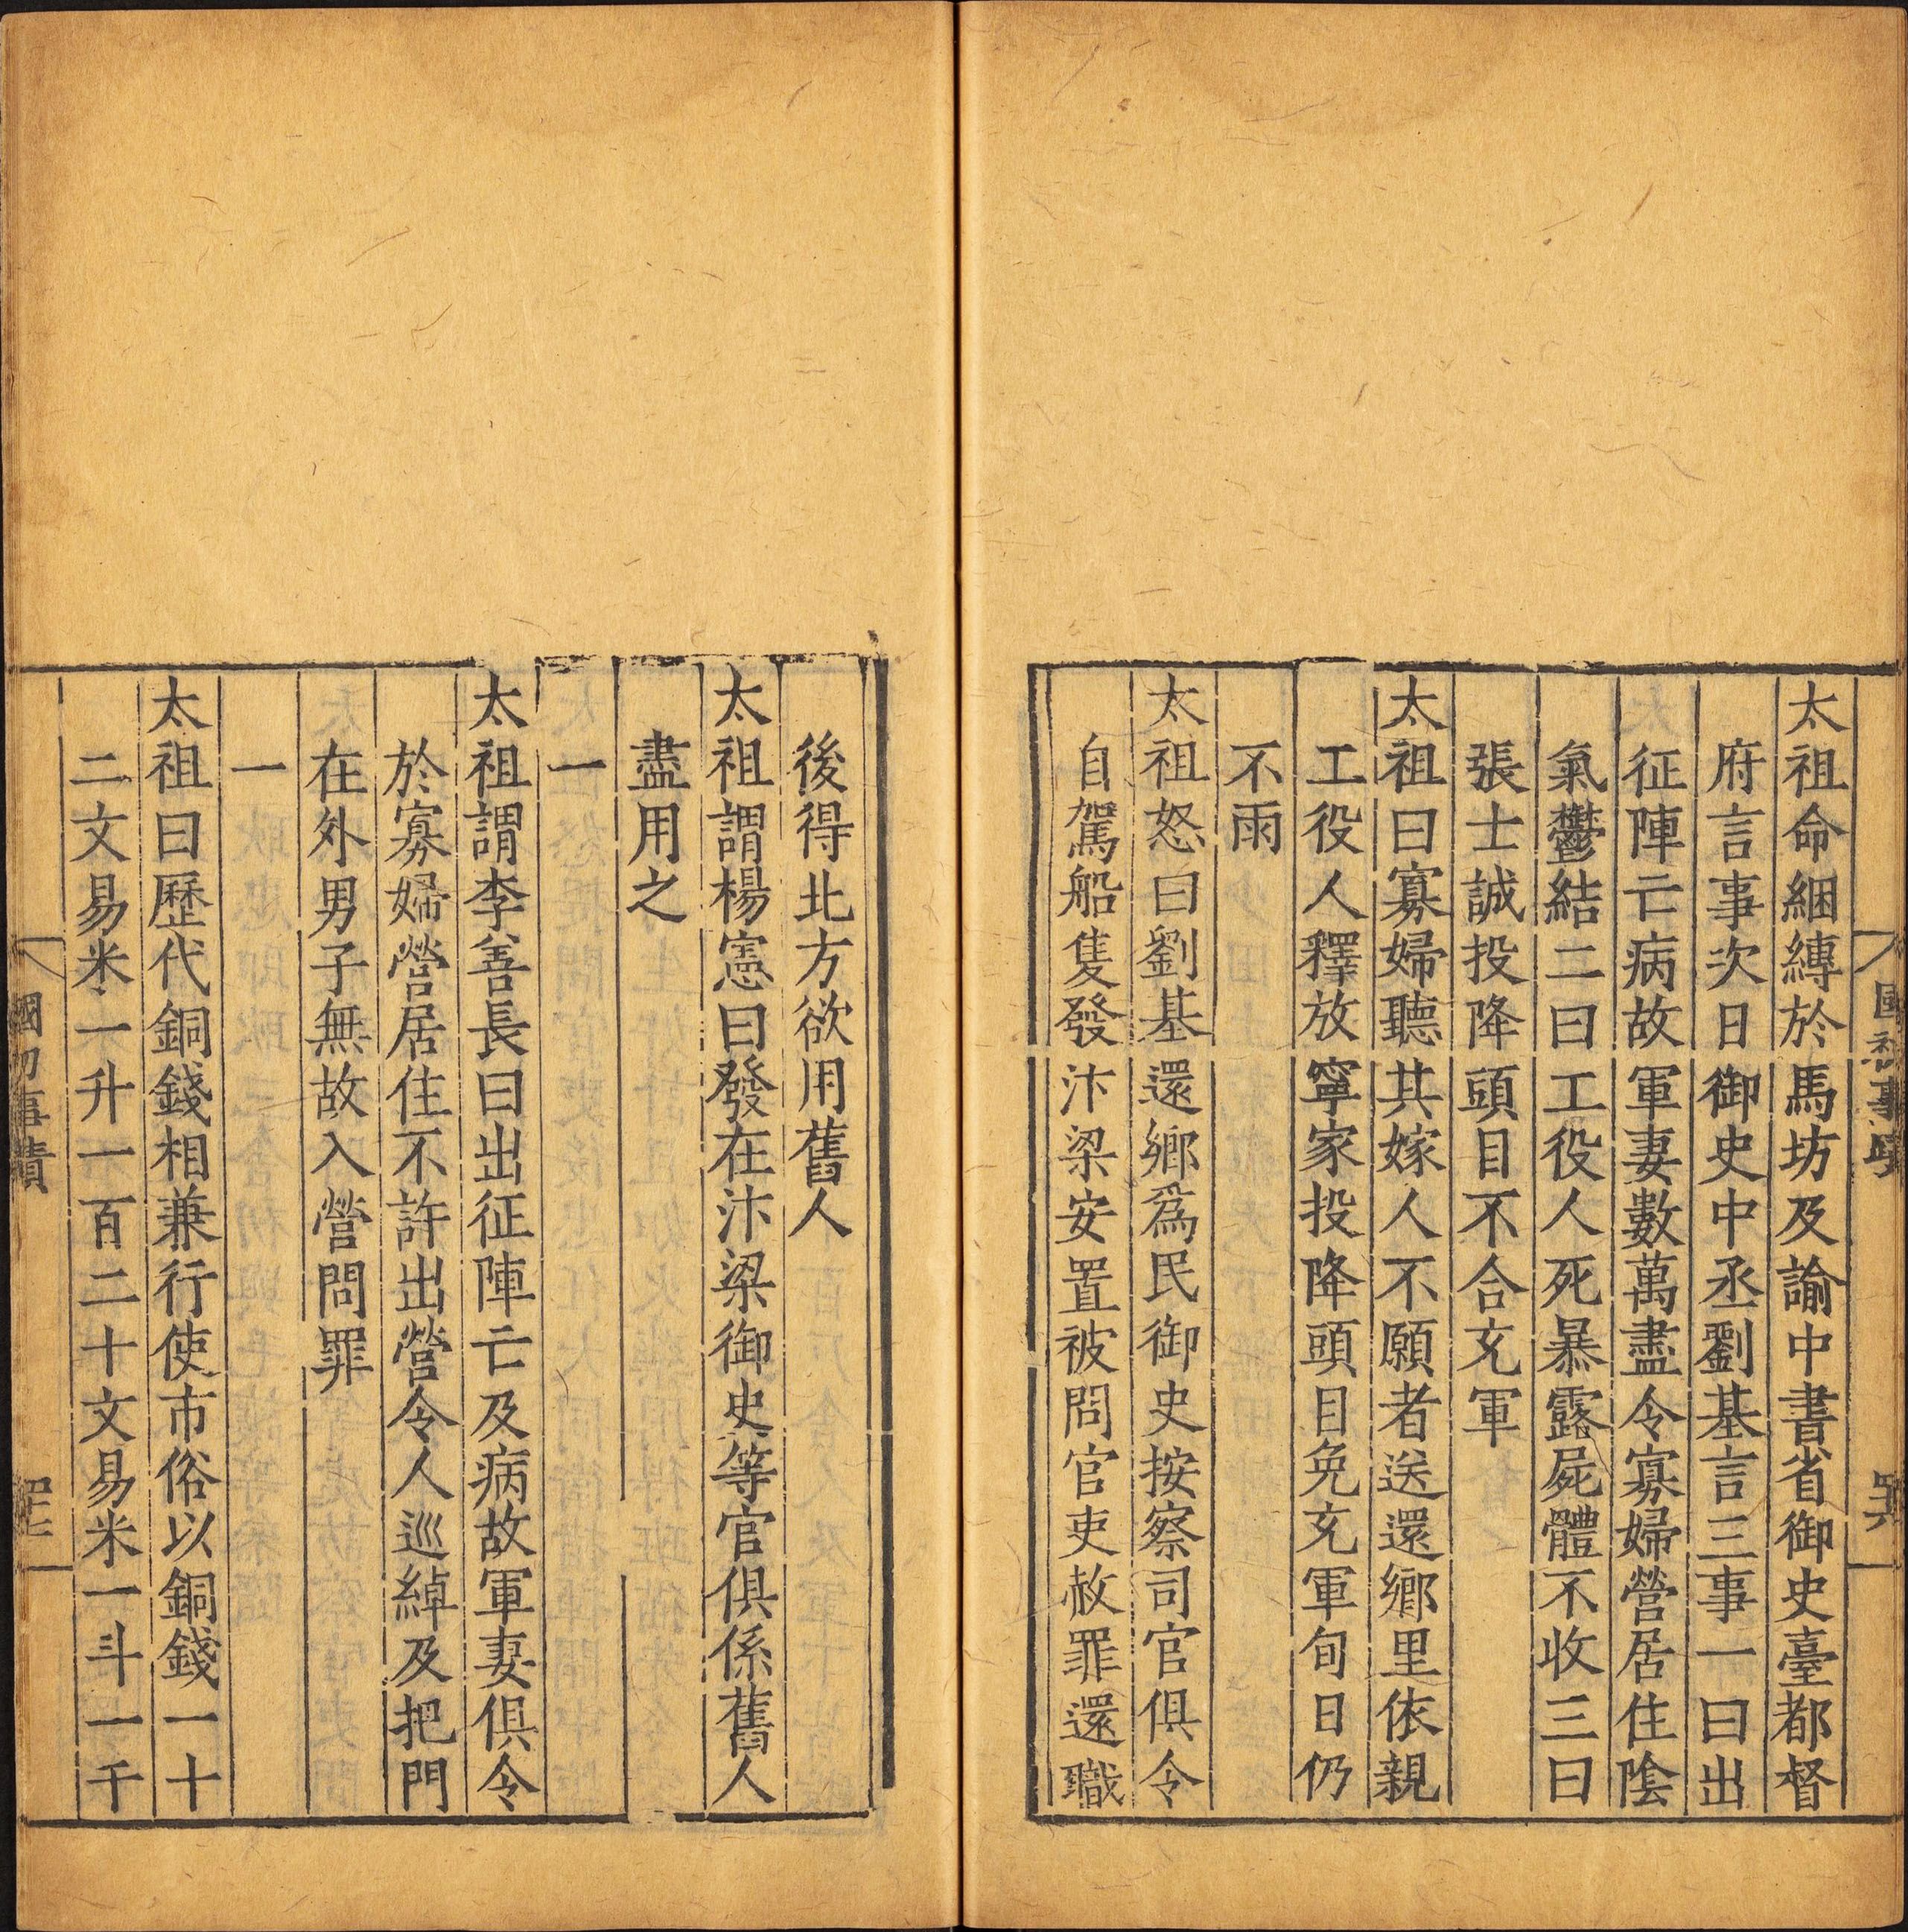 太祖命綑縳於馬坊及諭中書省御史臺都督
府言事次日御史中丞劉基言三事一曰出
征陣亡病故軍妻數萬盡令寡婦營居住陰
氣鬱結二曰工役人死暴露屍體不收三曰
張士誠投降頭目不合充軍
太祖曰寡婦聽其嫁人不願者送還鄉里依親
工役人釋放寧家投降頭目免充軍旬日仍
不雨
太祖怒曰劉基還鄉爲民御史按察司官俱令
自駕船隻發汴梁安置被問官吏赦罪還職
後得北方欲用舊人
太祖謂楊憲曰發在汴梁御史等官俱係舊人
盡用之
一
太祖謂李善長曰出征陣亡及病故軍妻俱令
於寡婦營居住不許出營令人巡綽及把門
在外男子無故入營問罪
一
太祖曰歷代銅錢相兼行使市俗以銅錢一十
二文易米一升一百二十文易米一斗一千
國初事蹟